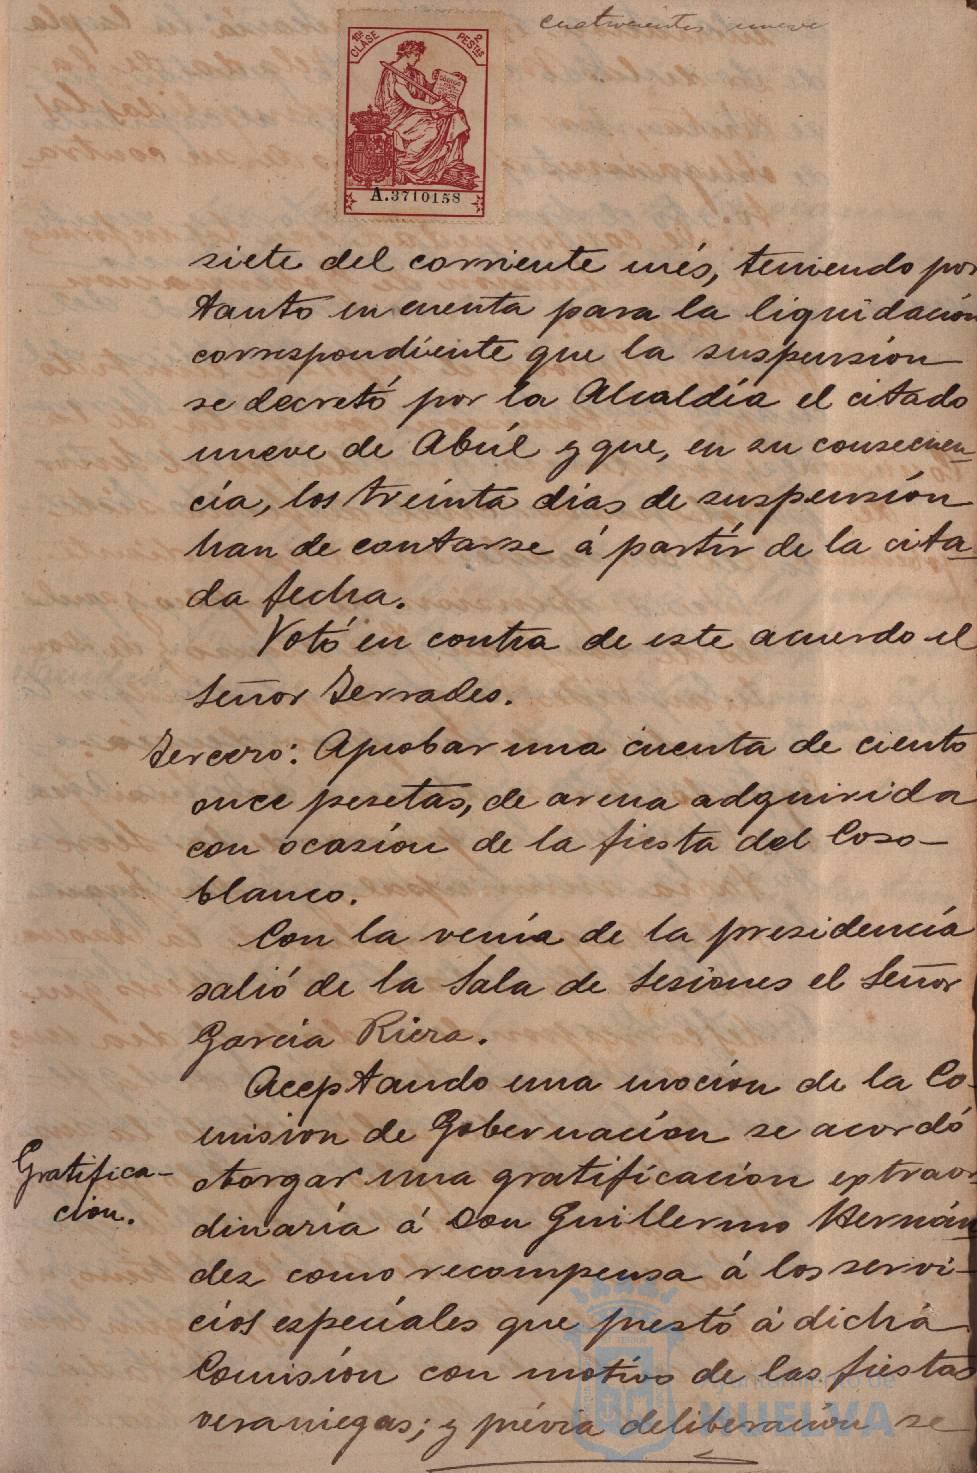 cuatrocientos nueve
10ª CLASE
2 PESTAS
A.3710158
siete del corriente més, teniendo por
tanto en cuenta para la liquidación
correspondiente que la suspensión
se decretó por la Alcaldía el citado
nueve de Abril y que, en su consecuen-
cia, los treinta dias de suspensión
han de contarse á partír de la cita-
da fecha.
Votó en contra de este acuerdo el
Señor Terrades.
Tercero: Aprobar una cuenta de ciento
once pesetas, de arena adquirida
con ocasíon de la fiesta del Coso-
blanco.
Con la venía de la presidencía
salió de la Sala de Sesiones el Señor
García Riera.
Aceptando una mocíon de la Co-
mision de Gobernacíon se acordó
otorgar una gratificacion extraor-
Gratifica-
cion.
dinaría á Don Guillermo Hernán-
dez como recompensa á los servi-
cíos especíales que prestó á dichá
Comisíon con motivo de las fiestas
veraniegas; y prévia deliberacíon se
Ayuntamiento de
HUELVA